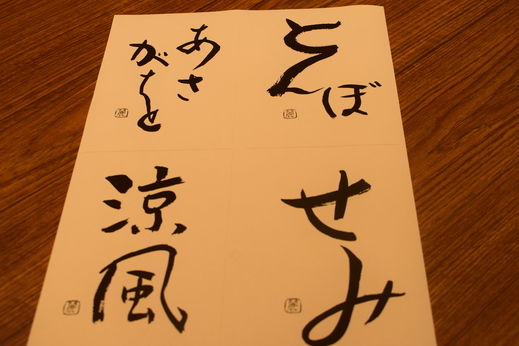 とん
ぼ
あさ
がほ
せみ
涼風